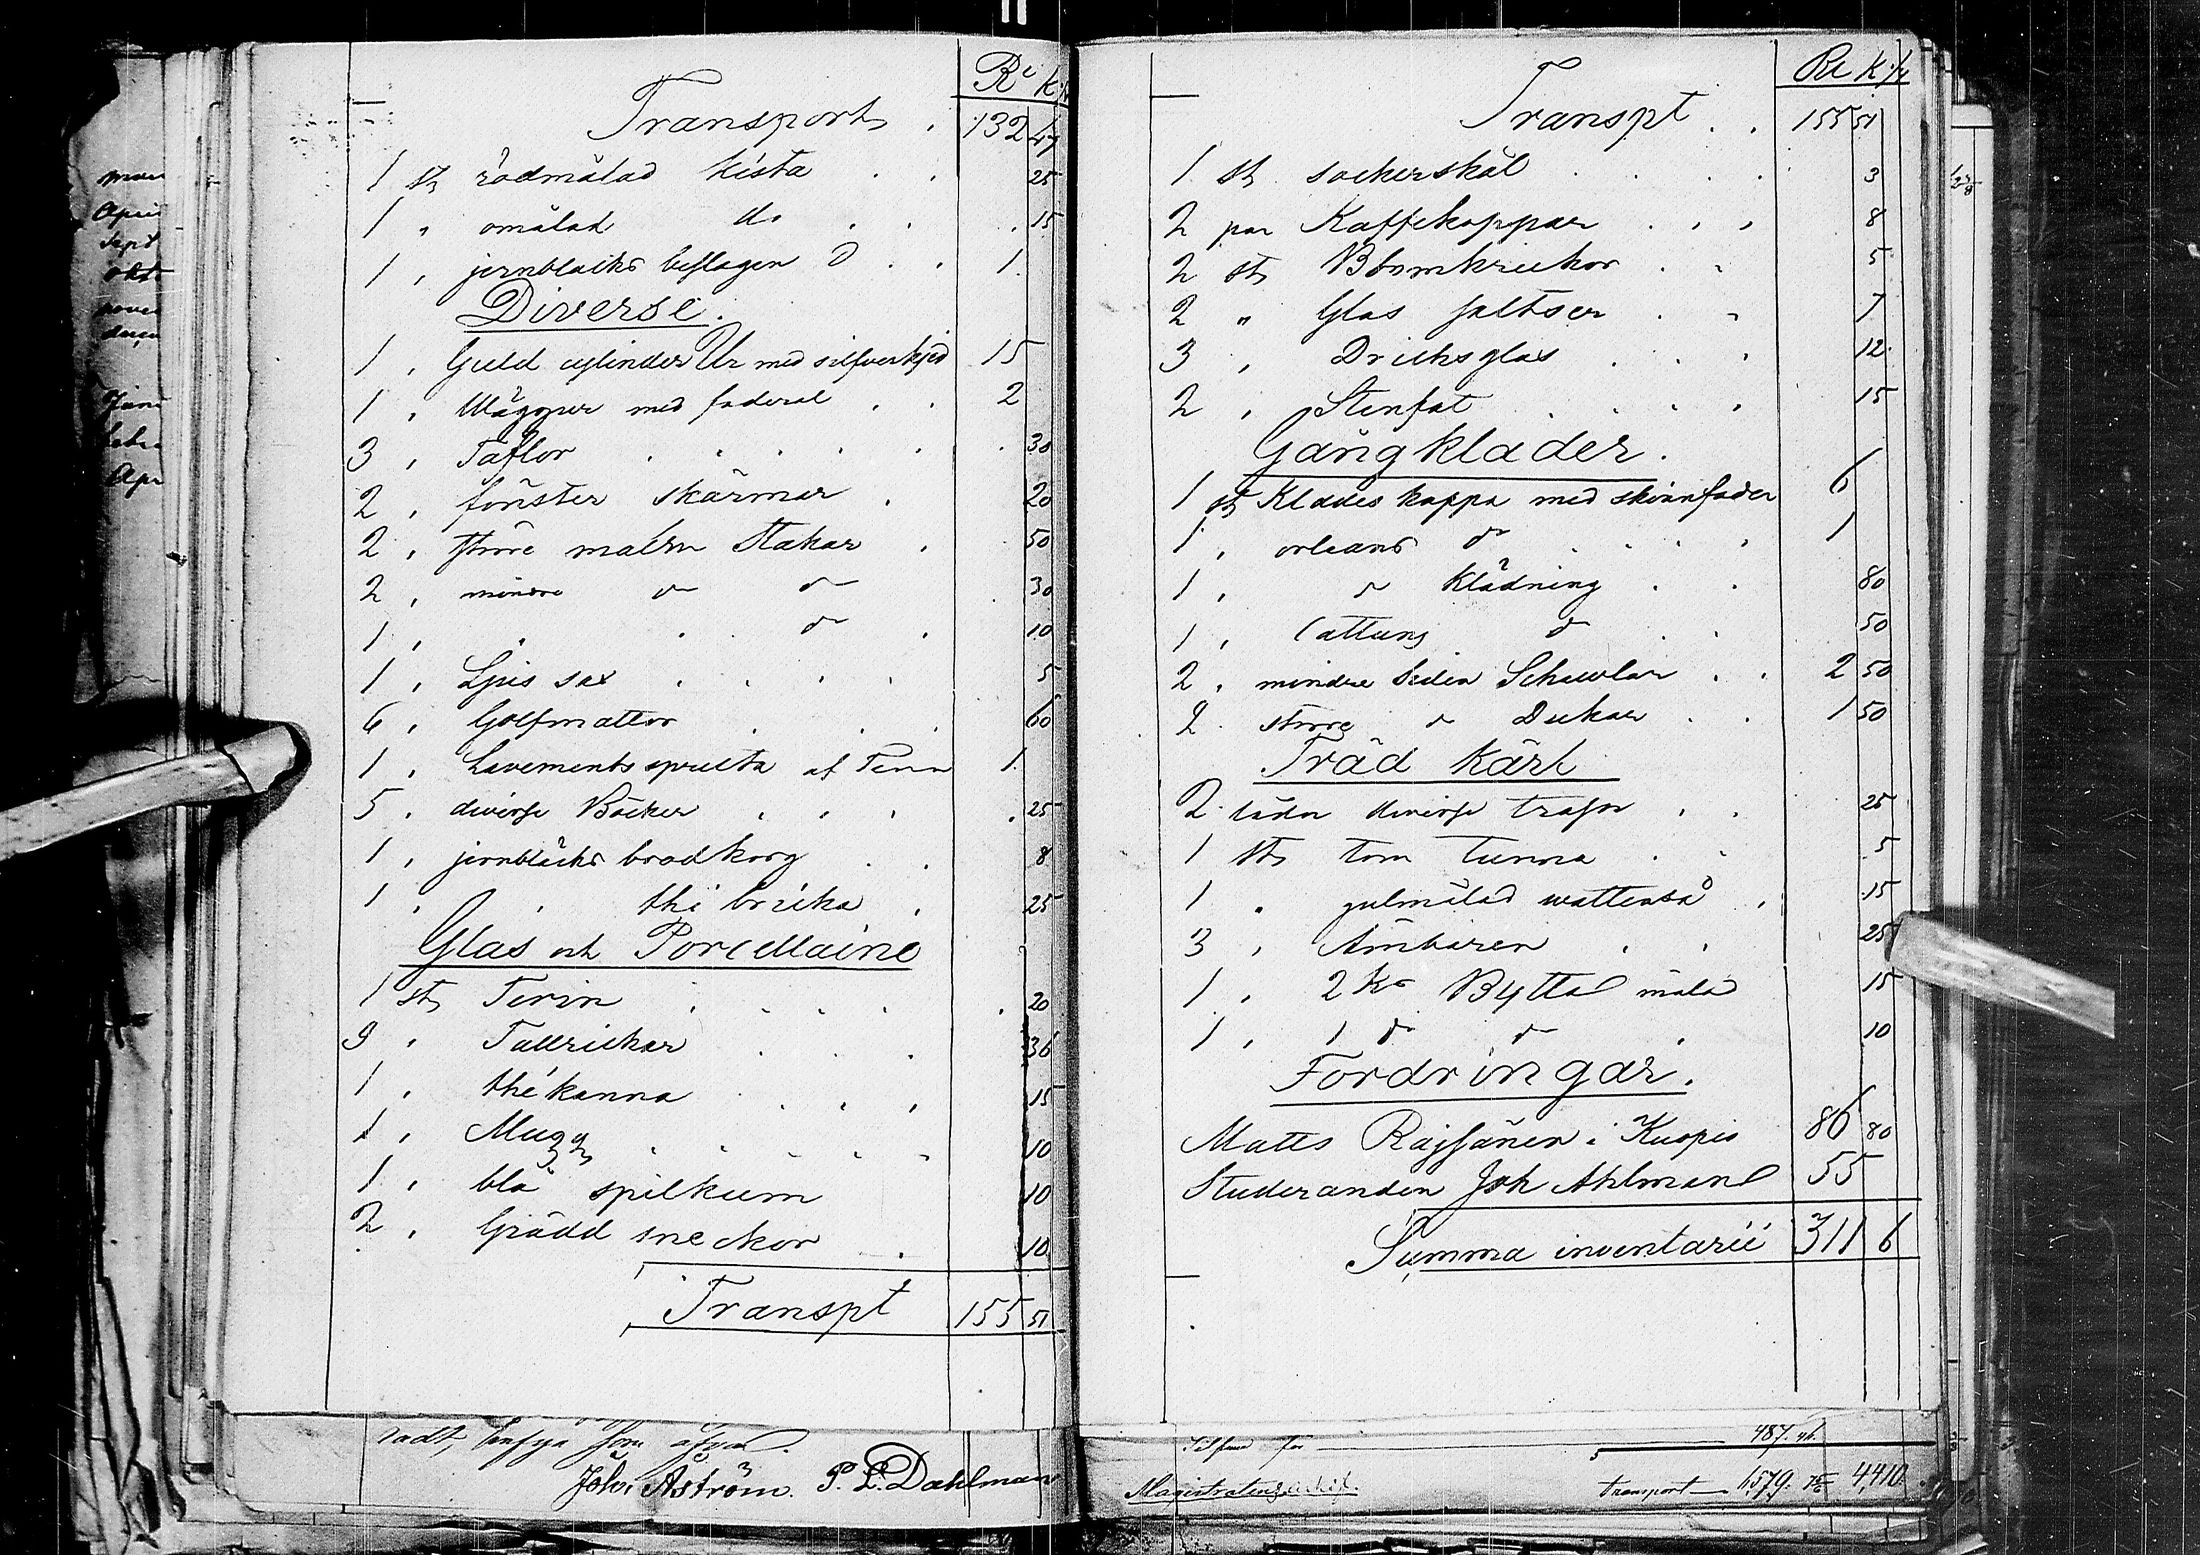 Rl k.
Transport 132 47
1 st rödmålad kista 25
1 " omålad do 15
1 " jernblecks beslagen d 1
Diverse.
1 " Guld cylinder Ur med silfverkjed 15
1 " Väggur med foderal 2
3 " Taflor 30
2 " fönster skärmar 20
2 " större malm Stakar 50
2 " mindre d d 30
1 " " d 10
1 " Ljus sax 5
6 " Golfmattor 60
1 " Lavements spruta af Tenn 1
5 " diverse Böcker 25
1 " jernblecks brödkorg 8
1 " " thé bricka 25
Glas och Porcellaine
1 st Terin 20
9 " Tallrickar 36
1 " thékanna 15
1 " Mugg 10
1 " blå spilkum 10
2 " Grädd sneckor 10
Transpt 155 51
Joh. Åström. P. L. Dahlman
Rl K.
Transpt 155 51
1 st sockerskål 3
2 par Kaffekoppar 8
2 st Blomkruckor 5
2 " Glas saltser 7
3 " Dricksglas 12
2 " Stenfat 15
Gångkläder.
1 st Klädes kappa med skinnfoder 6
1 " orleans d 1
1 " d Klädning 80
1 " Cattuns d 50
2 " mindre siden Schawlar 2 50
2 större d Dukar 1 50
Träd kärl
2 lådor diverse 25
1 st tom tunna 5
1 " gulmålad watteså 15
3 " Ämbaren 25
1 " 2 Kr Bytta måla 15
1 " 1 d d 10
Fordringar.
Matts Rajsänen i Kuopio 86 80
Studeranden Joh Ahlman 55
Summa inventarii 311 6
487. 46.
Magistratens arkif.
Transport 1,579. 4,410